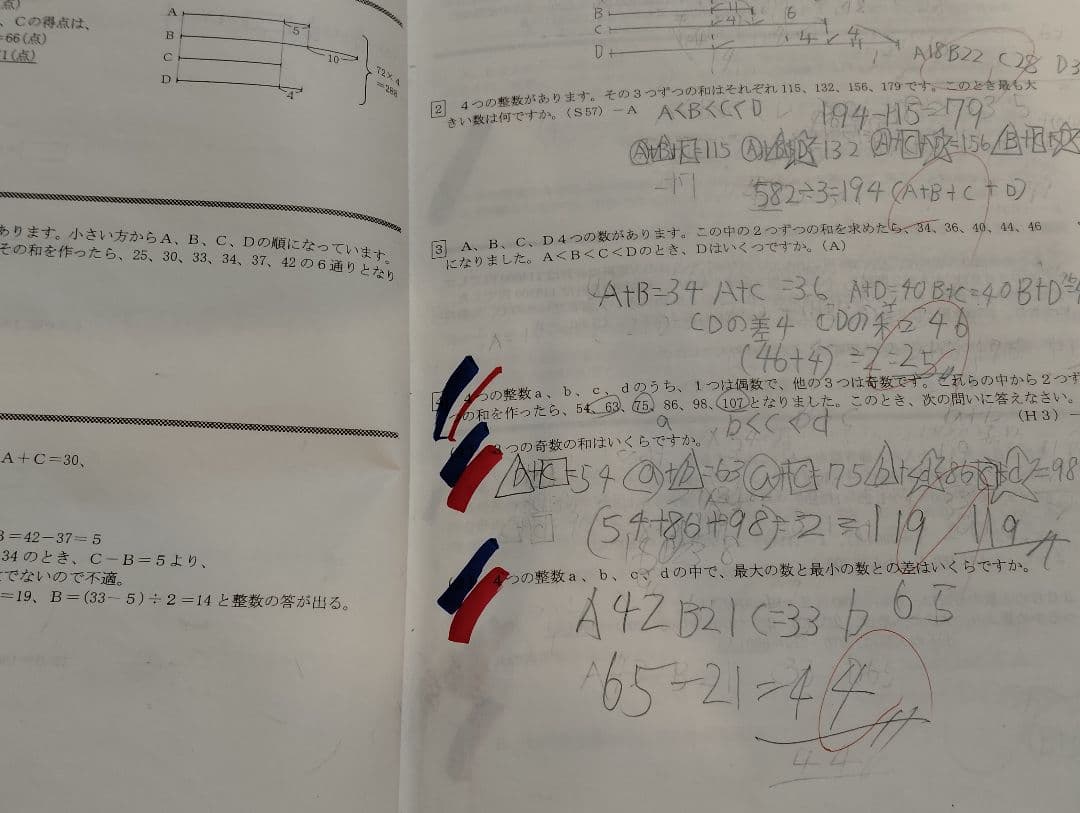 、Cの得点は、
=66(点)
1(点)
A
B
C
D
5
10
4
72×4
=288
あります。小さい方からA、B、C、Dの順になっています。
その和を作ったら、25、30、33、34、37、42の6通りとなり
A+C=30、
B=42-37=5
34のとき、C-B=5より、
でないので不適。
=19、B=(33-5)÷2=14と整数の答が出る。
B
C
D
4
6
4
A18B22 C28 D3
2 4つの整数があります。その3つずつの和はそれぞれ115、132、156、179です。このとき最も大
きい数は何ですか。(S57)-A A<B<C<D 194-115=79
A+B+C=115 A+B+D=132 A+C+D=156 B+C+D
582÷3=194 (A+B+C+D)
3 A、B、C、D4つの数があります。この中の2つずつの和を求めたら、34、36、40、44、46
になりました。A<B<C<Dのとき、Dはいくつですか。(A)
A+B=34 A+C=36 A+D=40 B+C=40 B+D=
CDの差4 CDの和=46
(46+4)÷2=25
つの整数a、b、c、dのうち、1つは偶数で、他の3つは奇数です。これらの中から2つず
の和を作ったら、54、63、75、86、98、107となりました。このとき、次の問いに答えなさい。
a b<c<d (H3)-
つの奇数の和はいくらですか。
b+c=54 a+b=63 a+c=75 b+d=86 c+d=98
(54+86+98)÷2=119 119
4つの整数a、b、c、dの中で、最大の数と最小の数との差はいくらですか。
A42 B21 C=33 b 65
65-21=44
44